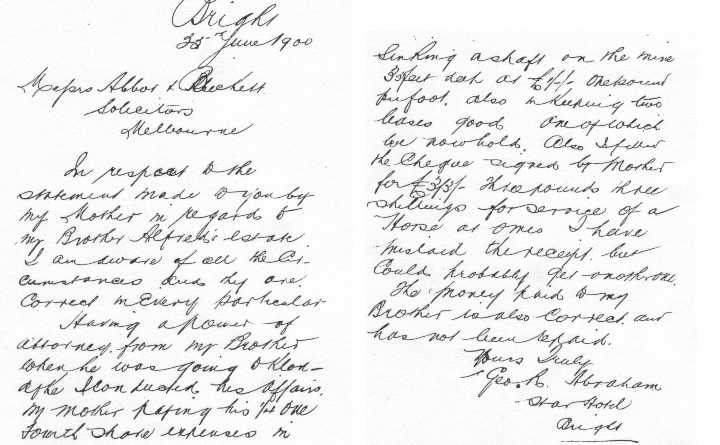 Bright
25th June 1900
Messrs Abbot & Beckett
Solicitors
Melbourne
In respect to the
statement made to you by
my Mother in regard to
my Brother Alfred's estate
I am aware of all the Cir-
cumstances and they are
Correct in Every particular
Having a power of
attorney from my Brother
when he was going to Klon-
dyke I conducted his affairs.
My mother paying his ¼ One
fourth share expenses in
Sinking a shaft on the mine
feet deep at £1/-/- One pound
per foot. also in Keeping two
leases good one of which
we now hold. Also I filled
the Cheque signed by Mother
for £3/3/- Three pounds three
shillings for service of a
Horse at Omeo I have
mislaid the receipt but
Could probably get another one.
The money paid to my
Brother is also Correct and
has not been repaid.
Yours Truly
Geo. R. Abraham
Star Hotel
Bright